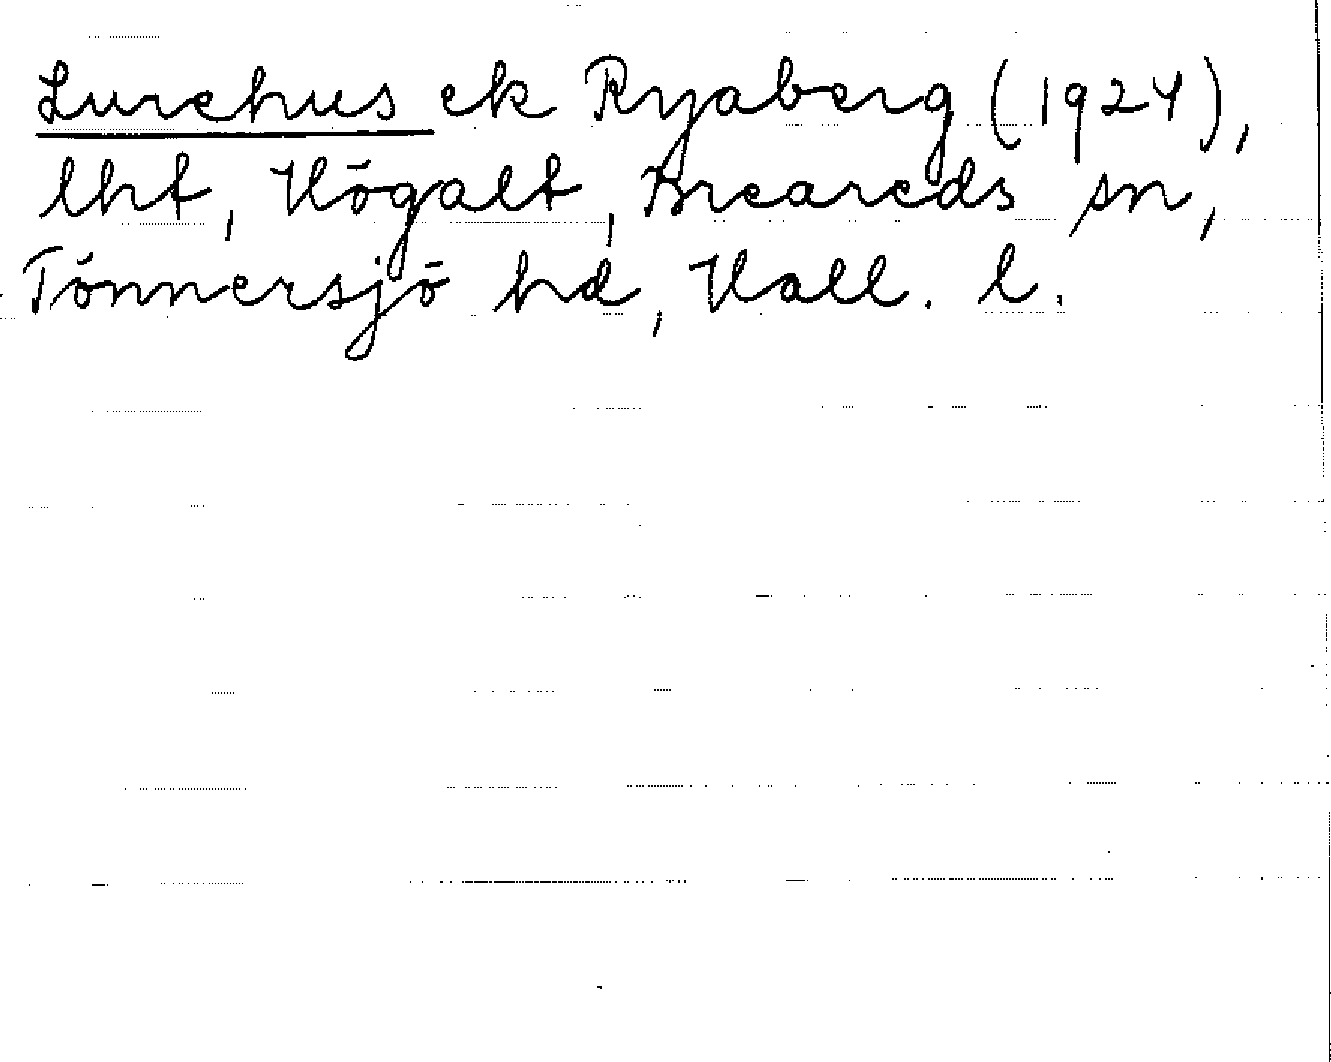 Lurehus el Ryaberg (1924),
lht, Högalt, Breareds sn,
Tönnersjö hd, Hall. l.